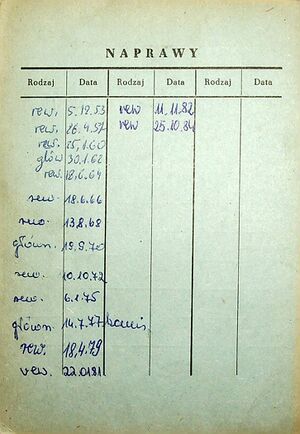 NAPRAWY
Rodzaj Data Rodzaj Data Rodzaj Data
rew. 5.12.53 rew 11.11.82
rew. 26.4.57 rew 25.10.84
rew. 25.1.60
głów 30.1.62
rew. 18.6.64
rew. 18.6.66
rew. 13.8.68
główn. 19.9.70
rew. 10.10.72
rew. 6.1.75
główn. 14.7.77
rew. 18.4.79
rew. 22.01.81